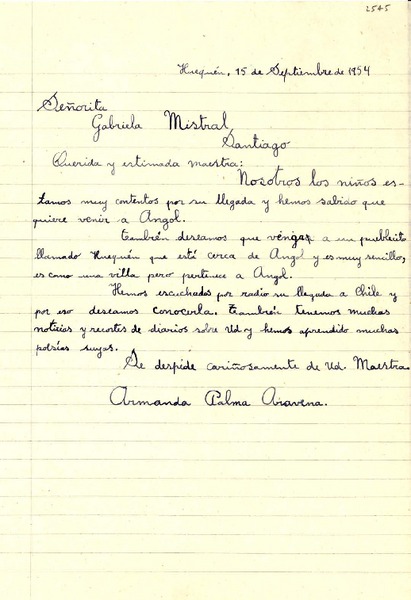 2545
Huequén, 15 de Septiembre de 1954
Señorita
Gabriela Mistral
Santiago
Querida y estimada maestra:
Nosotros los niños es-
tamos muy contentos por su llegada y hemos sabido que
quiere venir a Angol.
También deseamos que venga a un pueblecito
llamado Huequén que está cerca de Angol y es muy sencillo,
es como una villa pero pertenece a Angol.
Hemos escuchados por radio su llegada a Chile y
por eso deseamos conocerla. También tenemos muchas
noticias y recortes de diarios sobre Ud y hemos aprendido muchas
poesías suyas.
Se despide cariñosamente de Ud. Maestra
Armanda Palma Aravena.